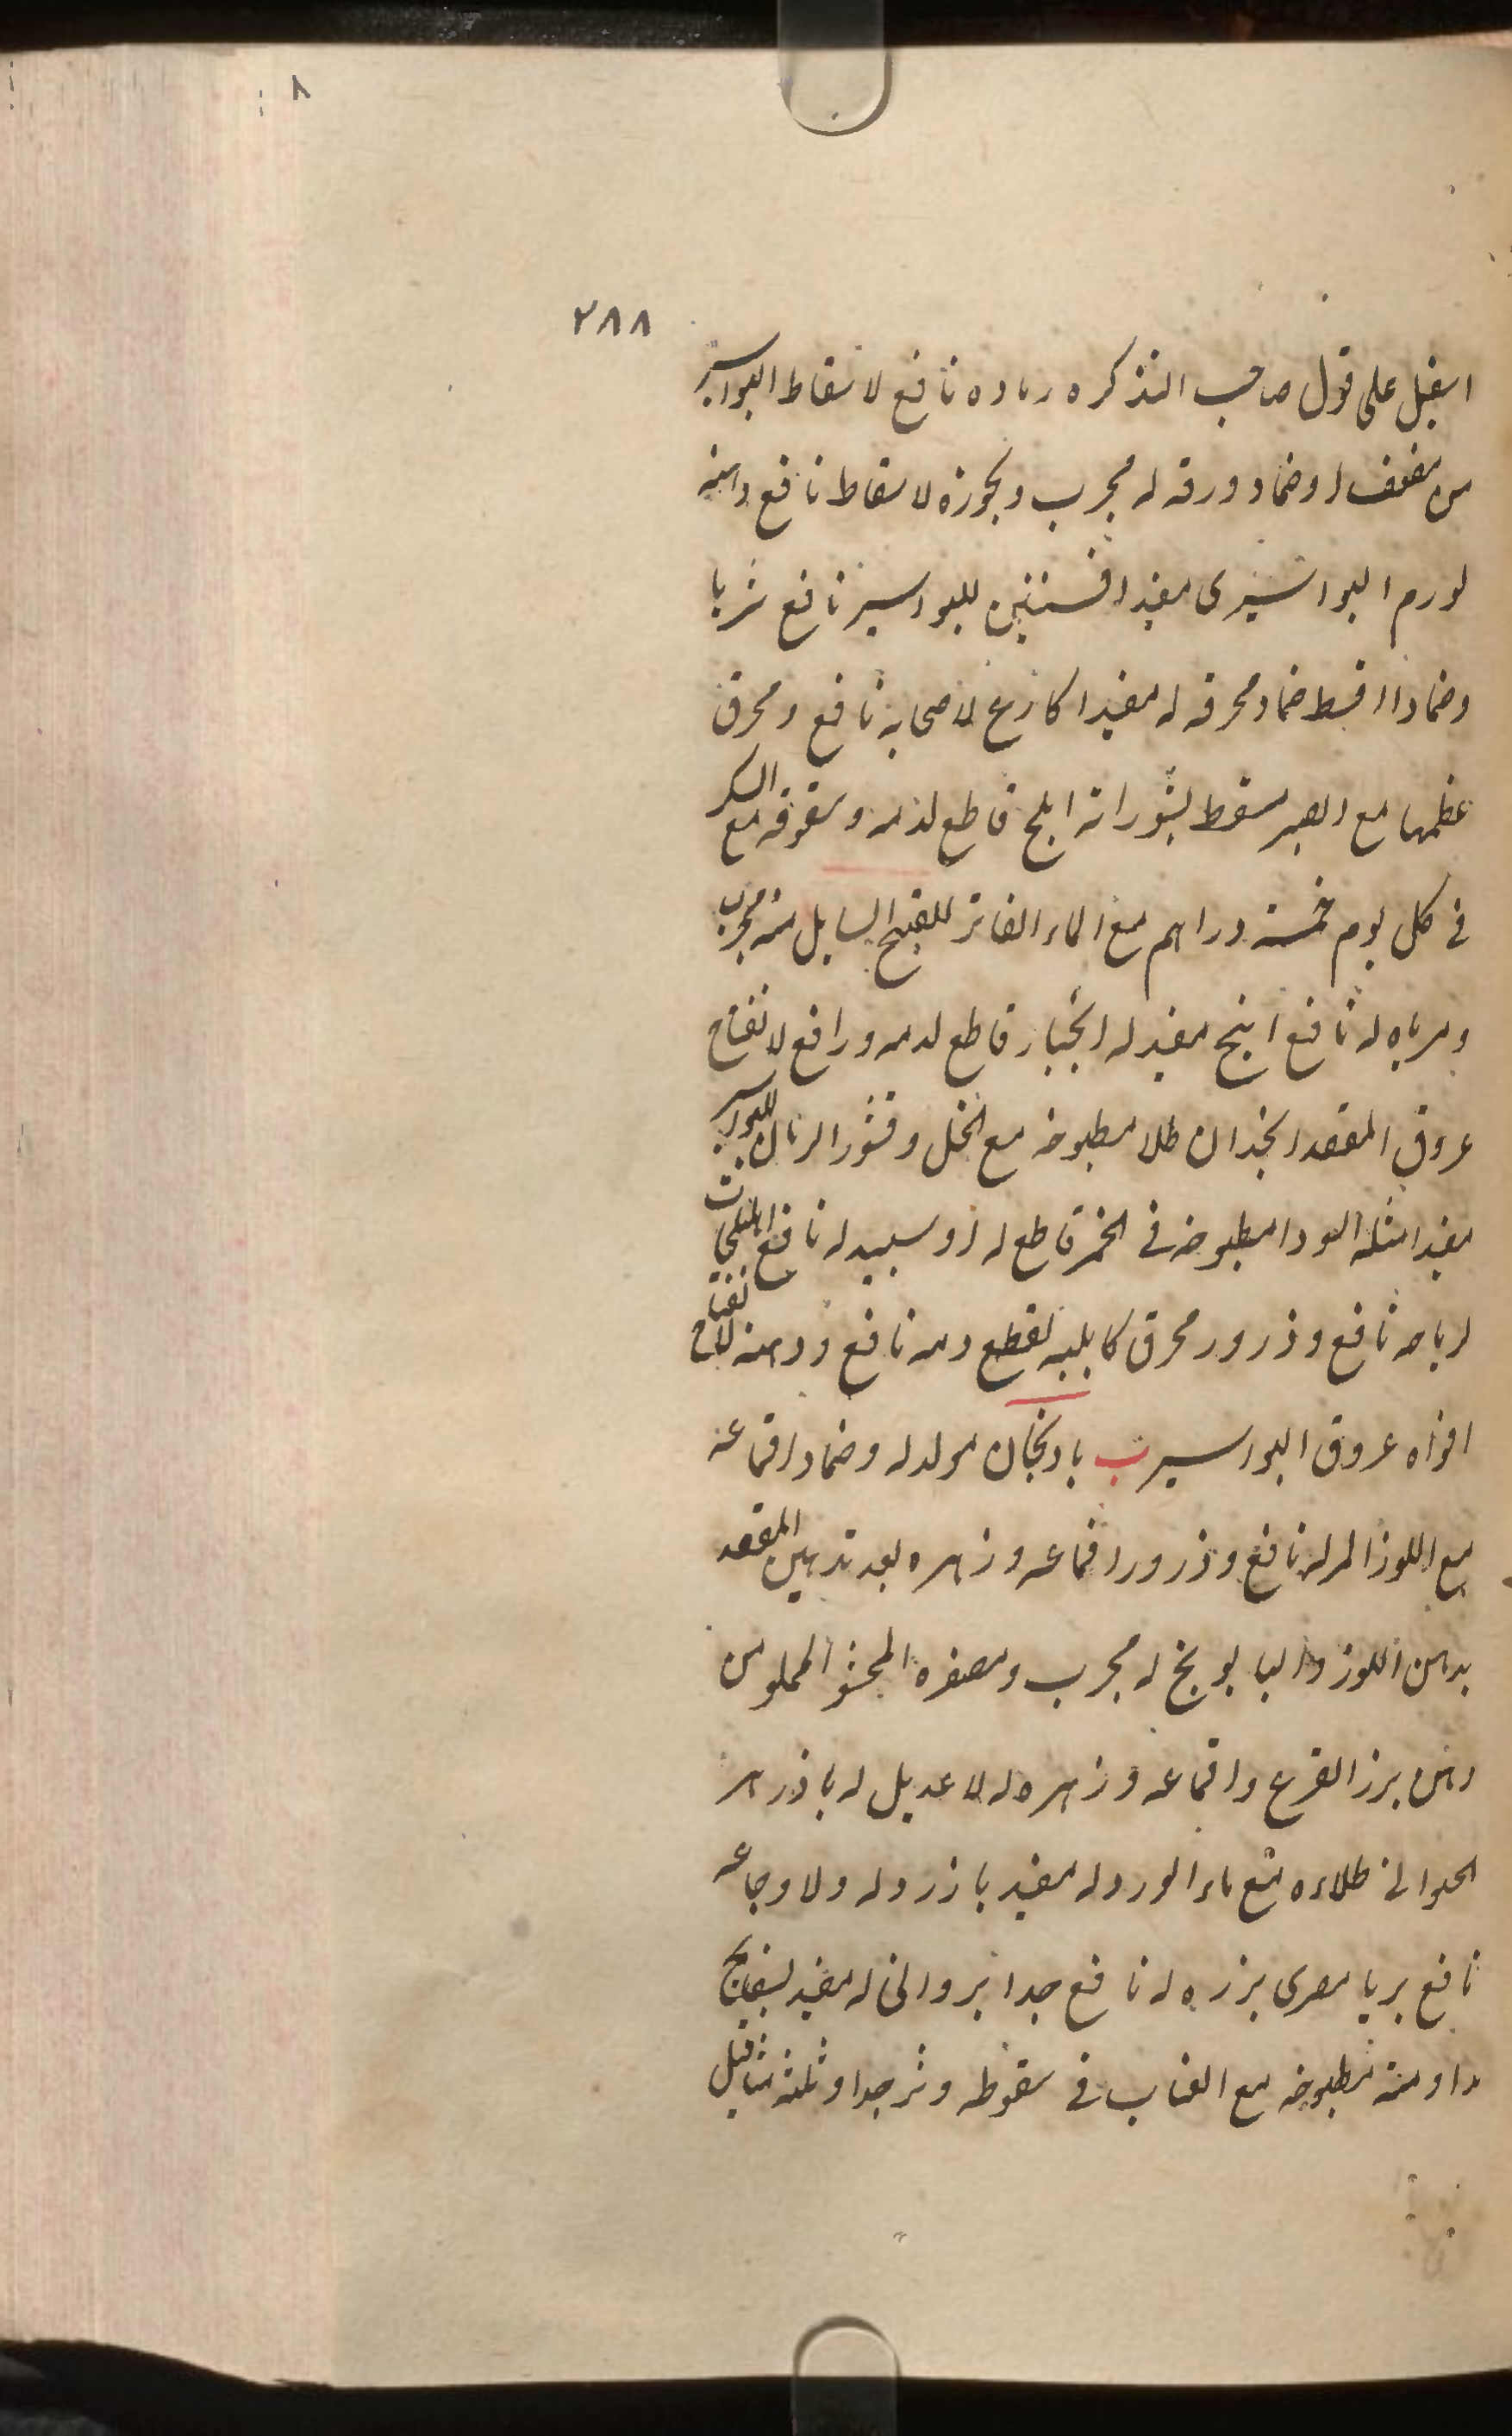 ٢٨٨
اسفيل على قول صاحب التذكره رماده نافع لاسقاط البواسير
من مضعف له وضماد ورقه له مجرب وبخوره لاسقاط نافع دهنه
لورم البواسيرى مفيد افسنتين للبواسير نافع شربا
وضمادا اقسط ضماد محرقه له مفيد اكارع لاصحابه نافع ومحرق
عظمها مع الصبر مسقط لبثوراته ابلج قاطع لدمه وسفوفه مع السكر
فى كل يوم خمسة دراهم مع الماء الفاتر للقيح السايل منه مجرب
ومرباه له نافع انبج مفيد له انجبار قاطع لدمه ورافع لانفتاح
عروق المقعد انجدان طلا مطبوخه مع الخل وقشور الرمان للبواسير
مفيد امثله السودا مطبوخه فى الخمر قاطع له اوسبيد له نافع
لرياحه نافع وذرور محرق كابليه لقطع دمه نافع ودهنه لانفتاح
افواه عروق البواسير ب بادنجان مولد له وضماد اقماعه
مع اللوز المر له نافع وذرور اقماعه وزهره بعد تدهين المقعد
بدهن اللوز والبابونج له مجرب ومصفره المحشو المملو من
دهن بزر القرع واقماعه وزهره له لا عديل له باذزهر
الحيوانى طلاءه مع ماء الورد له مفيد باذرد له ولاوجاعه
نافع بريا مصرى بزره له نافع جدا بروانى له مفيد بسفايج
مداومة مطبوخه مع العناب فى سقوطه وثر جدا وثلثه مثاقيل